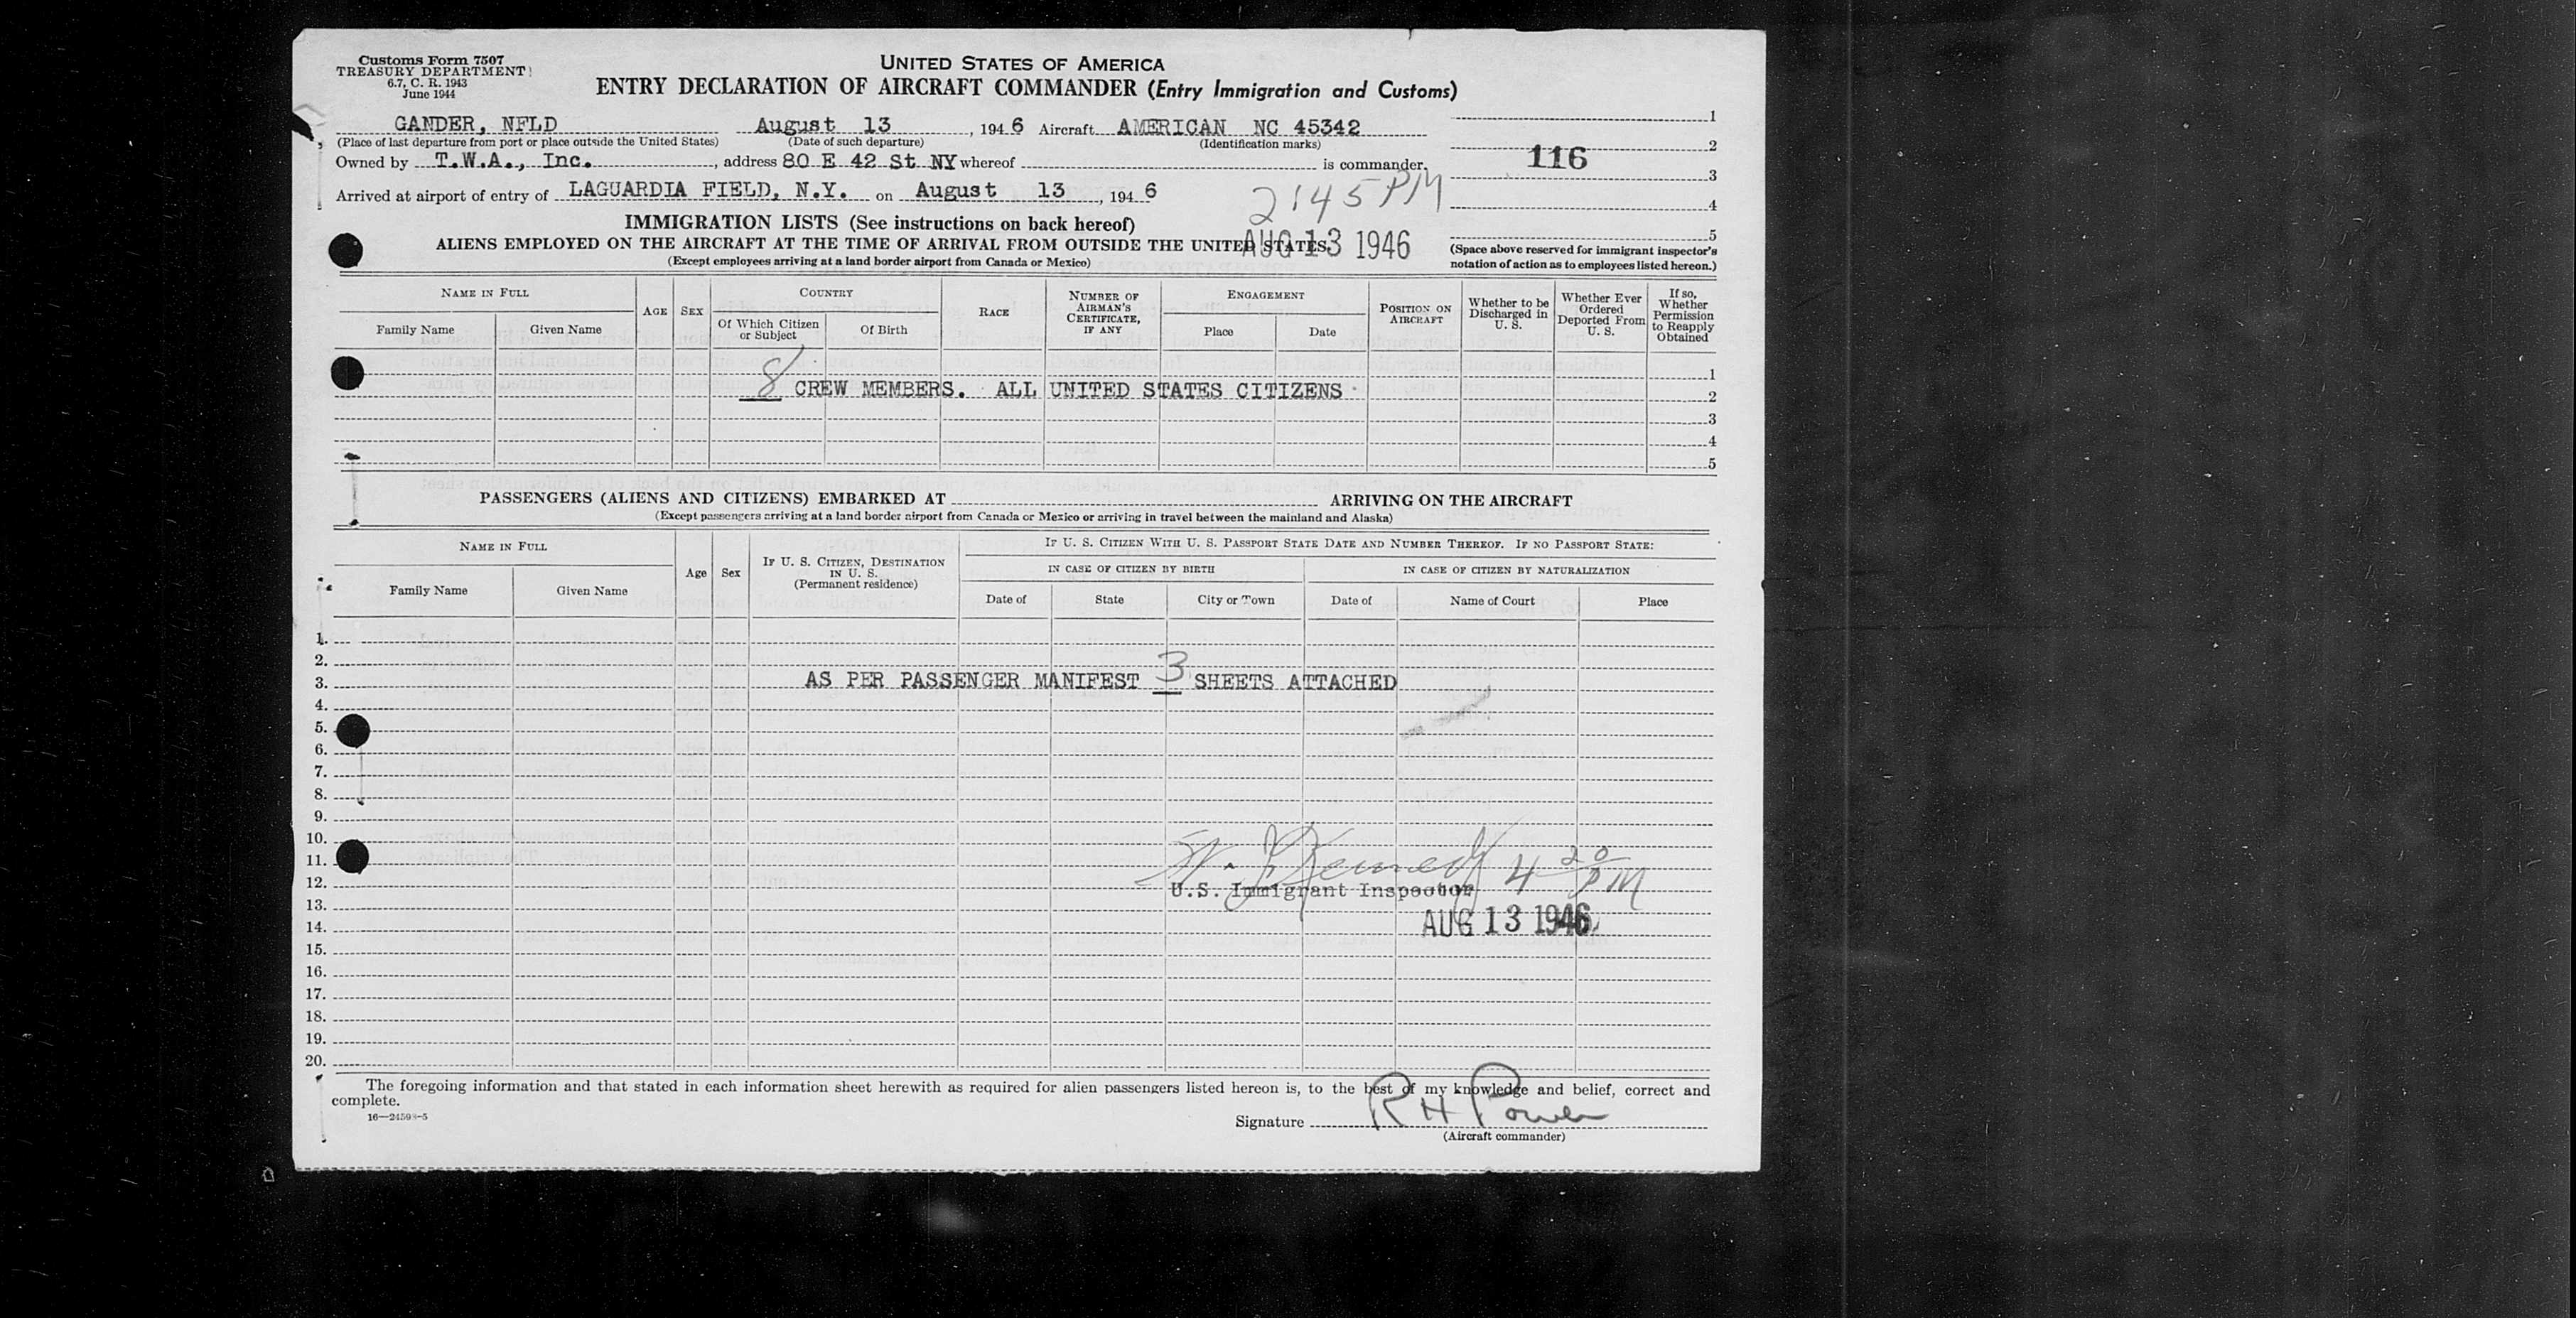 Customs Form 7507
TREASURY DEPARTMENT
6.7, C. R. 1943
June 1944
UNITED STATES OF AMERICA
ENTRY DECLARATION OF AIRCRAFT COMMANDER (Entry Immigration and Customs)
GANDER, NFLD August 13, 1946 Aircraft AMERICAN NC 45342
(Place of last departure from port or place outside the United States) (Date of such departure) (Identification marks)
Owned by T.W.A., Inc., address 80 E 42 St NY whereof is commander.
Arrived at airport of entry of LAGUARDIA FIELD, N.Y. on August 13, 1946
1
2
116
3
4
5
2:45 PM
AUG 13 1946
(Space above reserved for immigrant inspector's
notation of action as to employees listed hereon.)
IMMIGRATION LISTS (See instructions on back hereof)
ALIENS EMPLOYED ON THE AIRCRAFT AT THE TIME OF ARRIVAL FROM OUTSIDE THE UNITED STATES
(Except employees arriving at a land border airport from Canada or Mexico)
NAME IN FULL
Family Name Given Name
AGE SEX
COUNTRY
Of Which Citizen or Subject Of Birth
RACE
NUMBER OF AIRMAN'S CERTIFICATE, IF ANY
ENGAGEMENT
Place Date
POSITION ON AIRCRAFT
Whether to be Discharged in U. S.
Whether Ever Ordered Deported From U. S.
If so, Whether Permission to Reapply Obtained
1
8 CREW MEMBERS. ALL UNITED STATES CITIZENS 2
3
4
5
PASSENGERS (ALIENS AND CITIZENS) EMBARKED AT ARRIVING ON THE AIRCRAFT
(Except passengers arriving at a land border airport from Canada or Mexico or arriving in travel between the mainland and Alaska)
NAME IN FULL
Family Name Given Name
Age Sex
IF U. S. CITIZEN, DESTINATION IN U. S.
(Permanent residence)
IF U. S. CITIZEN WITH U. S. PASSPORT STATE DATE AND NUMBER THEREOF. IF NO PASSPORT STATE:
IN CASE OF CITIZEN BY BIRTH IN CASE OF CITIZEN BY NATURALIZATION
Date of State City or Town Date of Name of Court Place
1.
2.
3. AS PER PASSENGER MANIFEST 3 SHEETS ATTACHED
4.
5.
6.
7.
8.
9.
10.
11. Kennedy 4 20 PM
12. U.S. Immigrant Inspector
13.
14. AUG 13 1946
15.
16.
17.
18.
19.
20.
The foregoing information and that stated in each information sheet herewith as required for alien passengers listed hereon is, to the best of my knowledge and belief, correct and
complete.
16—24598-5
Signature R H Power
(Aircraft commander)